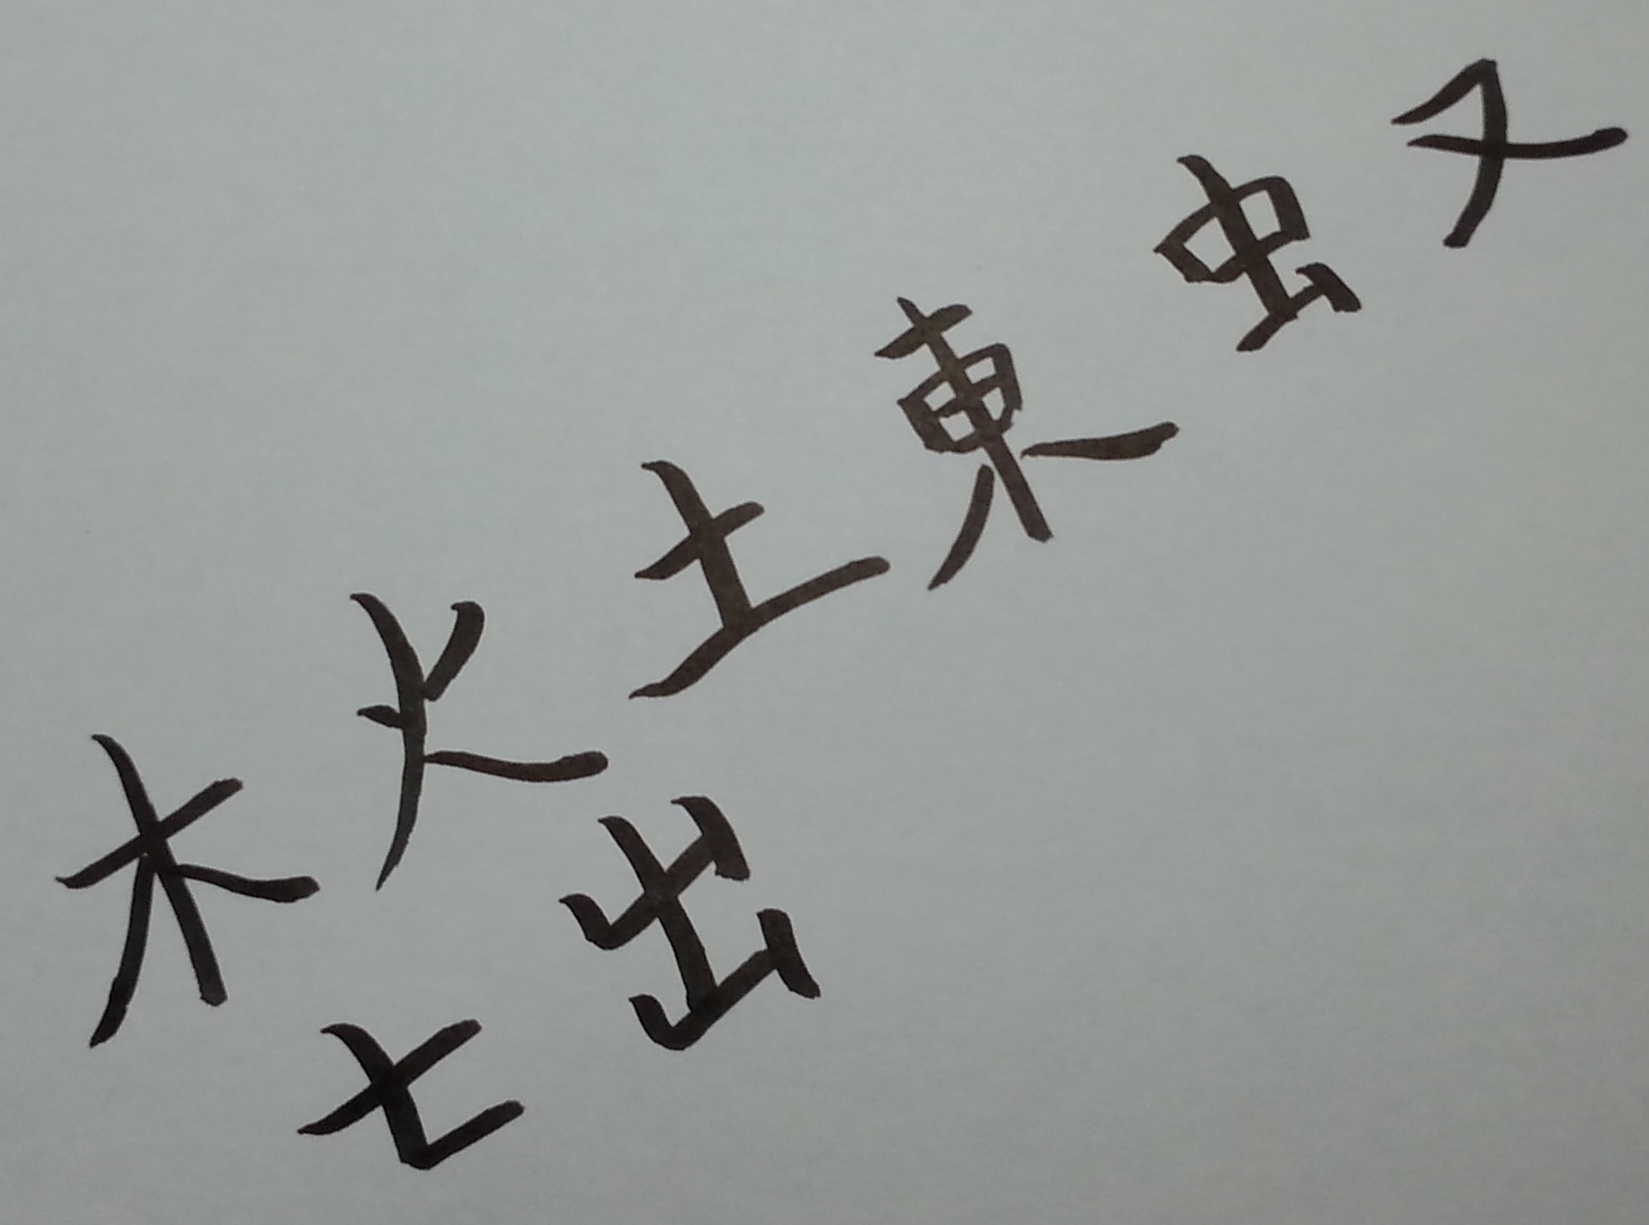 木火土東虫又
七出